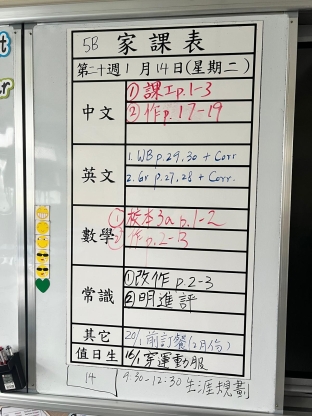 5B 家課表
第二十週 1月14日(星期二)
中文
① 課工p.1-3
② 作p.17-19
英文
1. WB p.29,30 + Corr
2. Gr p.27,28 + Corr.
數學
① 校本3a p.1-2
② 作p.2-3
常識
① 改作 p.2-3
② 明進評
其它 20/1 前訂餐(2月份)
值日生 16/1 穿運動服
14 9:30-12:30 生涯規劃